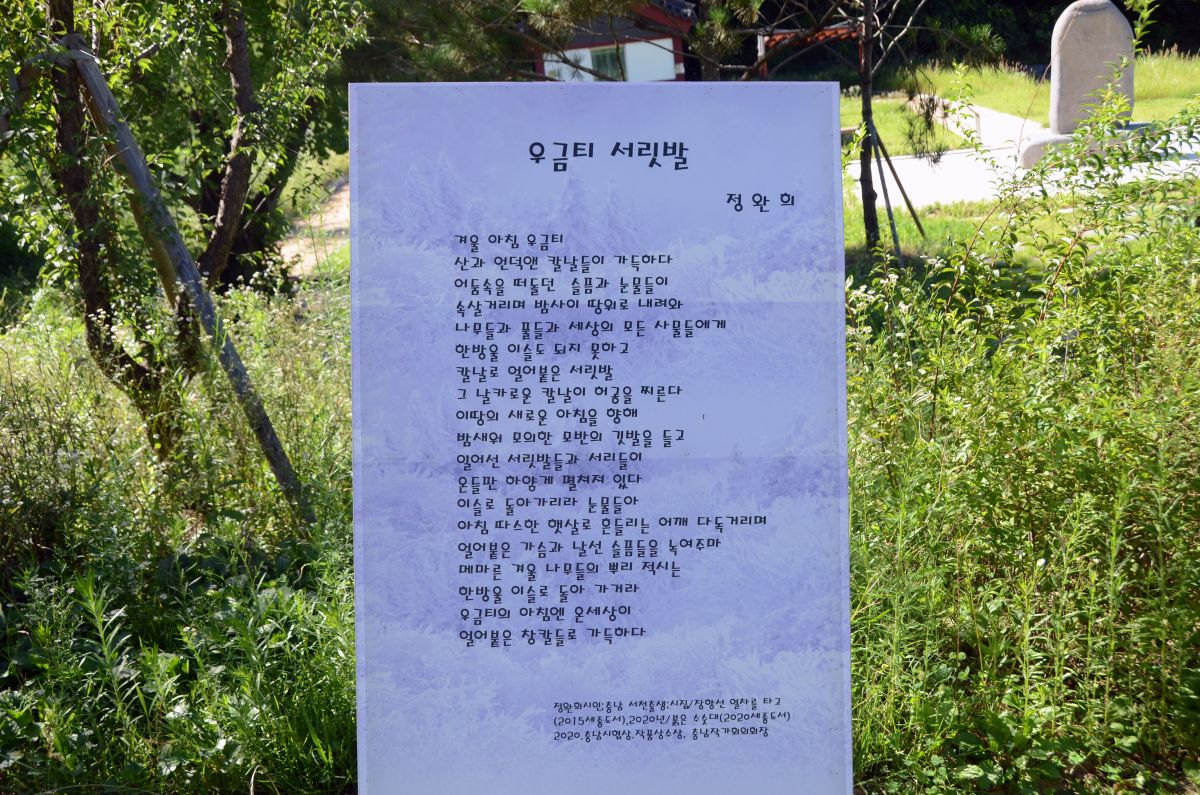 우금티 서릿발
정완희
겨울 아침 우금티
산과 언덕앤 칼날들이 가득하다
어둠속을 떠돌던 슬픔과 눈물들이
속살거리며 밤사이 땅위로 내려와
나무들과 풀들과 세상의 모든 사물들에게
한방울 이슬도 되지 못하고
칼날로 얼어붙은 서릿발
그 날카로운 칼날이 허공을 찌른다
이땅의 새로운 아침을 향해
밤새워 모의한 모반의 깃발을 들고
일어선 서릿발들과 서리들이
온들판 하얗게 펼쳐져 있다
이슬로 돌아가리라 눈물들아
아침 따스한 햇살로 흔들리는 어깨 다독거리며
얼어붙은 가슴과 날선 슬픔들을 녹여주마
메마른 겨울 나무들의 뿌리 적시는
한방울 이슬로 돌아 가거라
우금티의 아침엔 온세상이
얼어붙은 창칼들로 가득하다
정완희시인;충남 서천출생;시집/장항선 열차를 타고
(2015세종도서),2020년/붉은 수숫대(2020세종도서)
2020.충남시협상.작품상수상, 충남작가회의회장